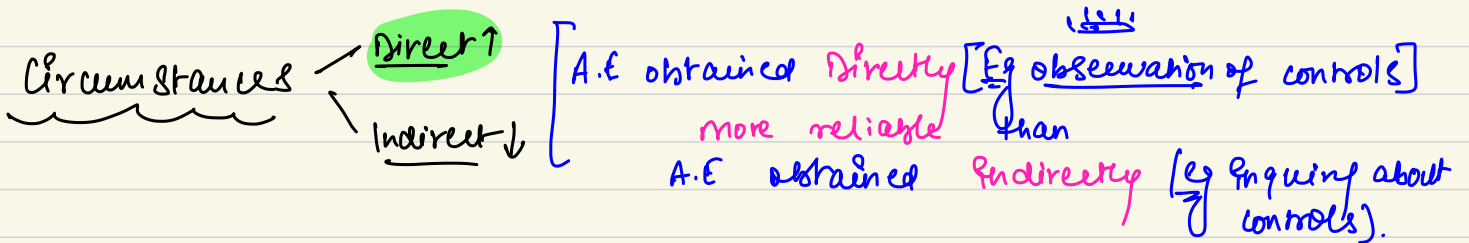 Circumstances
Direct ↑
Indirect ↓
[A.E obtained Directly [Eg observation of controls]
more reliable than
A.E obtained Indirectly (eg Inquiry about
controls).